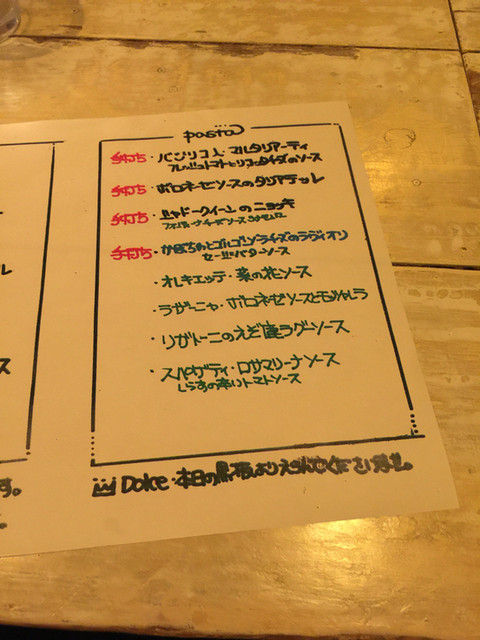 pasta
手打ち・バジリコ入マルタリアーティ
フレッシュトマトとリコッタチーズのソース
手打ち・ボロネーゼソースのタリアテッレ
手打ち・シャドークイーンのニョッキ
手打ち・かぼちゃとゴルゴンゾラチーズのラヴィオリ
セージバターソース
・オレキエッテ・菜の花ソース
・ラザーニャ・ボロネーゼソースとモッツァレラ
・リガトーニのえぞ鹿ラグーソース
・スパゲティ・ロサマリーナソース
しらすの辛いトマトソース
Dolce・本日の黒板よりえらんでくださいませ。
ル
ス
す。